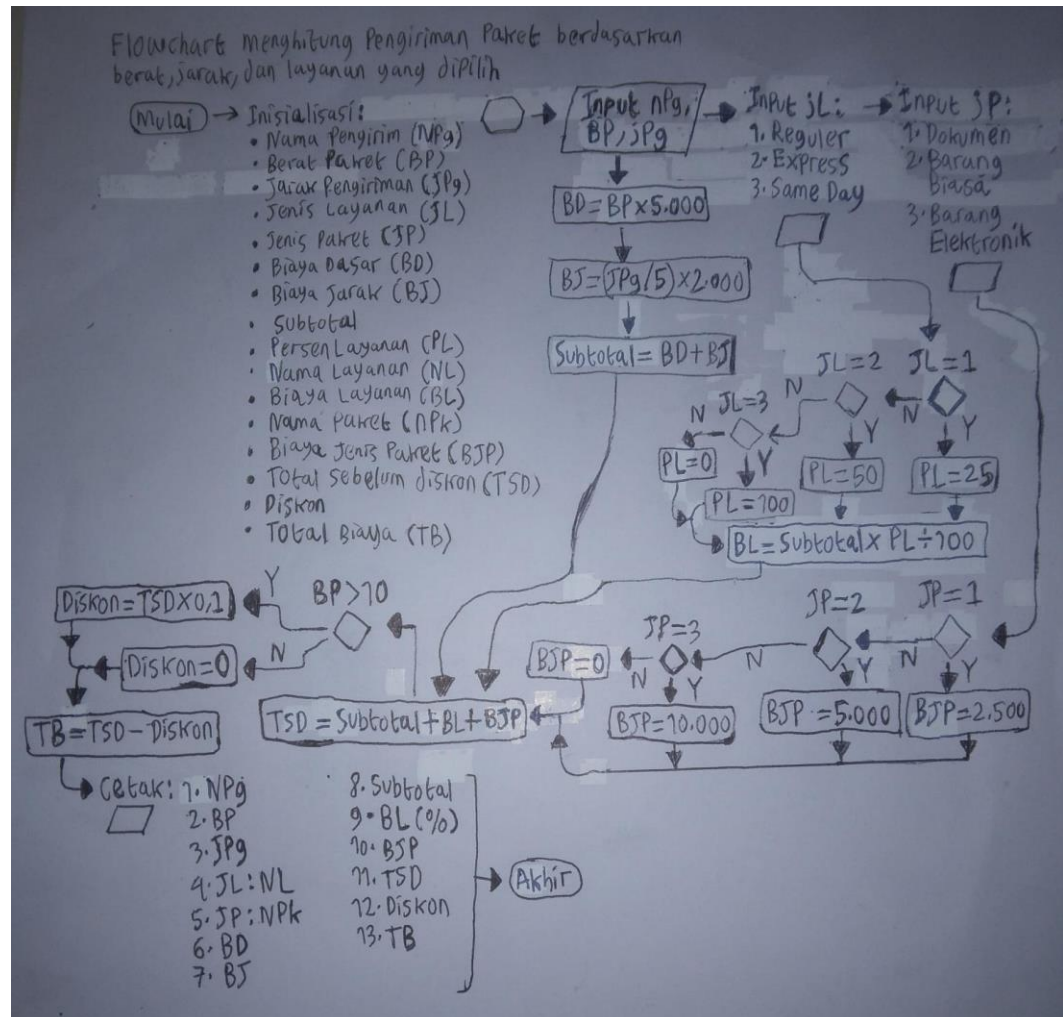 Flowchart menghitung Pengiriman Paket berdasarkan
berat, jarak, dan layanan yang dipilih
Mulai
Inisialisasi:
• Nama Pengirim (NPg)
• Berat Paket (BP)
• Jarak Pengiriman (JPg)
• Jenis Layanan (JL)
• Jenis Paket (JP)
• Biaya Dasar (BD)
• Biaya Jarak (BJ)
• Subtotal
• Persen Layanan (PL)
• Nama Layanan (NL)
• Biaya Layanan (BL)
• Nama Paket (NPk)
• Biaya Jenis Paket (BJP)
• Total sebelum diskon (TSD)
• Diskon
• Total Biaya (TB)
Input nPg,
BP, jPg
BD=BP×5.000
BJ=(JPg/5)×2.000
Subtotal=BD+BJ
Input jL:
1. Reguler
2. Express
3. Same Day
Input jP:
1. Dokumen
2. Barang
Biasa
3. Barang
Elektronik
JL=1
N
Y
PL=25
JL=2
N
Y
PL=50
JL=3
N
Y
PL=0
PL=100
BL=Subtotal×PL÷100
JP=1
N
Y
BJP=2.500
JP=2
N
Y
BJP=5.000
JP=3
N
Y
BJP=0
BJP=10.000
TSD=Subtotal+BL+BJP
BP>10
Y
N
Diskon=TSD×0,1
Diskon=0
TB=TSD-Diskon
Cetak: 1. NPg
2. BP
3. JPg
4. JL:NL
5. JP:NPk
6. BD
7. BJ
8. Subtotal
9. BL(%)
10. BJP
11. TSD
12. Diskon
13. TB
Akhir